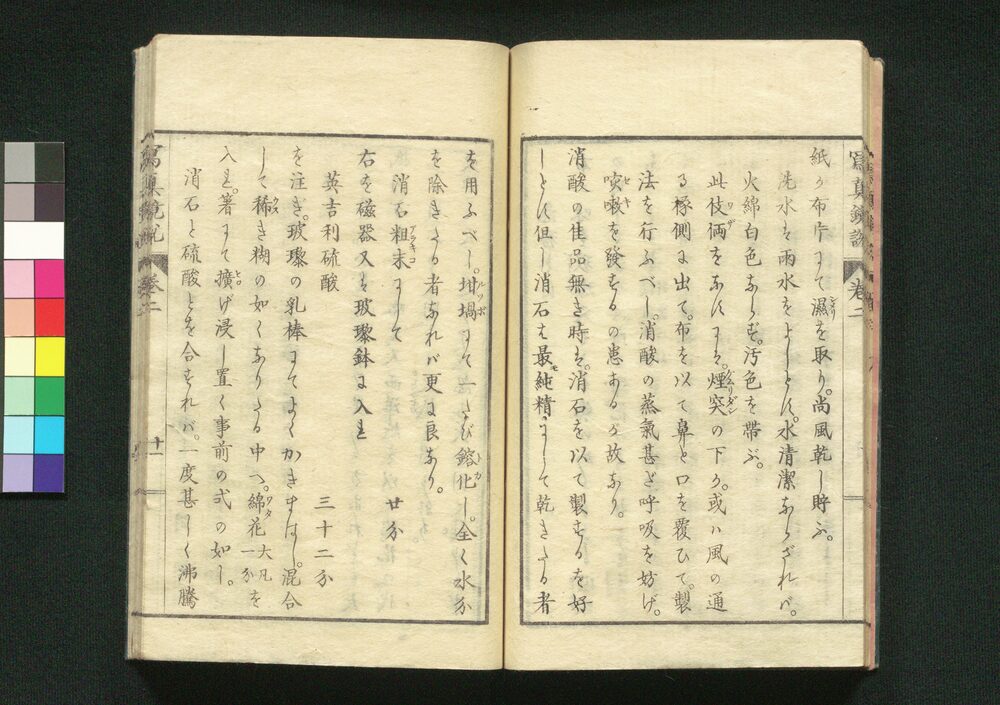 寫真鏡說 卷二
紙か布片にて濕を取り。尚風乾し貯ふ。
洗水は雨水をよしとす。水清潔ならざれバ。
火綿白色ならず。汚色を帯ぶ。
此伎倆をなすにハ。煙突の下か。或ハ風の通
る椽側に出て。布を以て鼻と口を覆ひて。製
法を行ふべし。消酸の蒸氣甚さ呼吸を妨げ。
咳嗽を發するの患あるが故なり。
消酸の佳品無き時は。消石を以て製するを好
しとす。但し消石は最純精にして乾きたる者
を用ふべし。坩堝にて一たび鎔化し。全く水分
を除きたる者なれバ更に良なり。
消石粗末にして 廿分
右を磁器又は玻瓈鉢に入れ
英吉利硫酸 三十二分
を注き。玻瓈の乳棒にてよくかきまはし。混合
して稀き糊の如くなりたる中へ。綿花大凡一分を
入れ。箸にて擴げ浸し置く事前の式の如し。
消石と硫酸とを合すれバ。一度甚しく沸騰
寫眞鏡說 卷二 十一